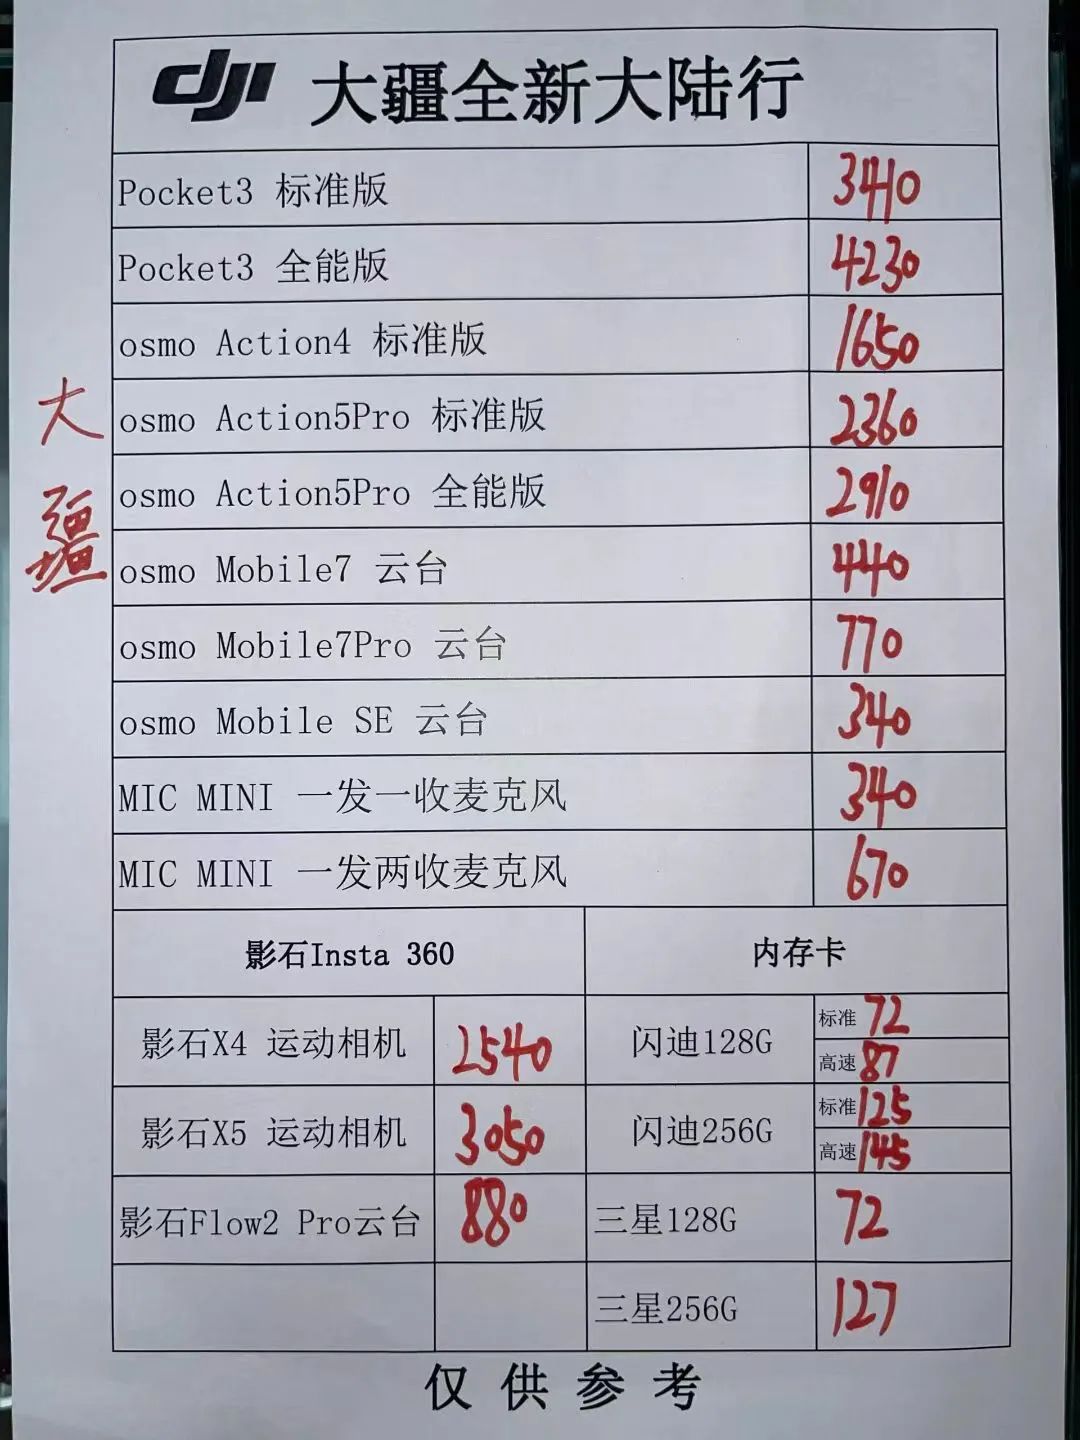 dji 大疆全新大陆行
Pocket3 标准版 3410
Pocket3 全能版 4230
osmo Action4 标准版 1650
osmo Action5Pro 标准版 2360
osmo Action5Pro 全能版 2910
osmo Mobile7 云台 440
osmo Mobile7Pro 云台 770
osmo Mobile SE 云台 340
MIC MINI 一发一收麦克风 340
MIC MINI 一发两收麦克风 670
大疆
影石Insta 360 内存卡
影石X4 运动相机 2540 闪迪128G 标准 72
高速 87
影石X5 运动相机 3050 闪迪256G 标准 125
高速 145
影石Flow2 Pro云台 880 三星128G 72
三星256G 127
仅供参考